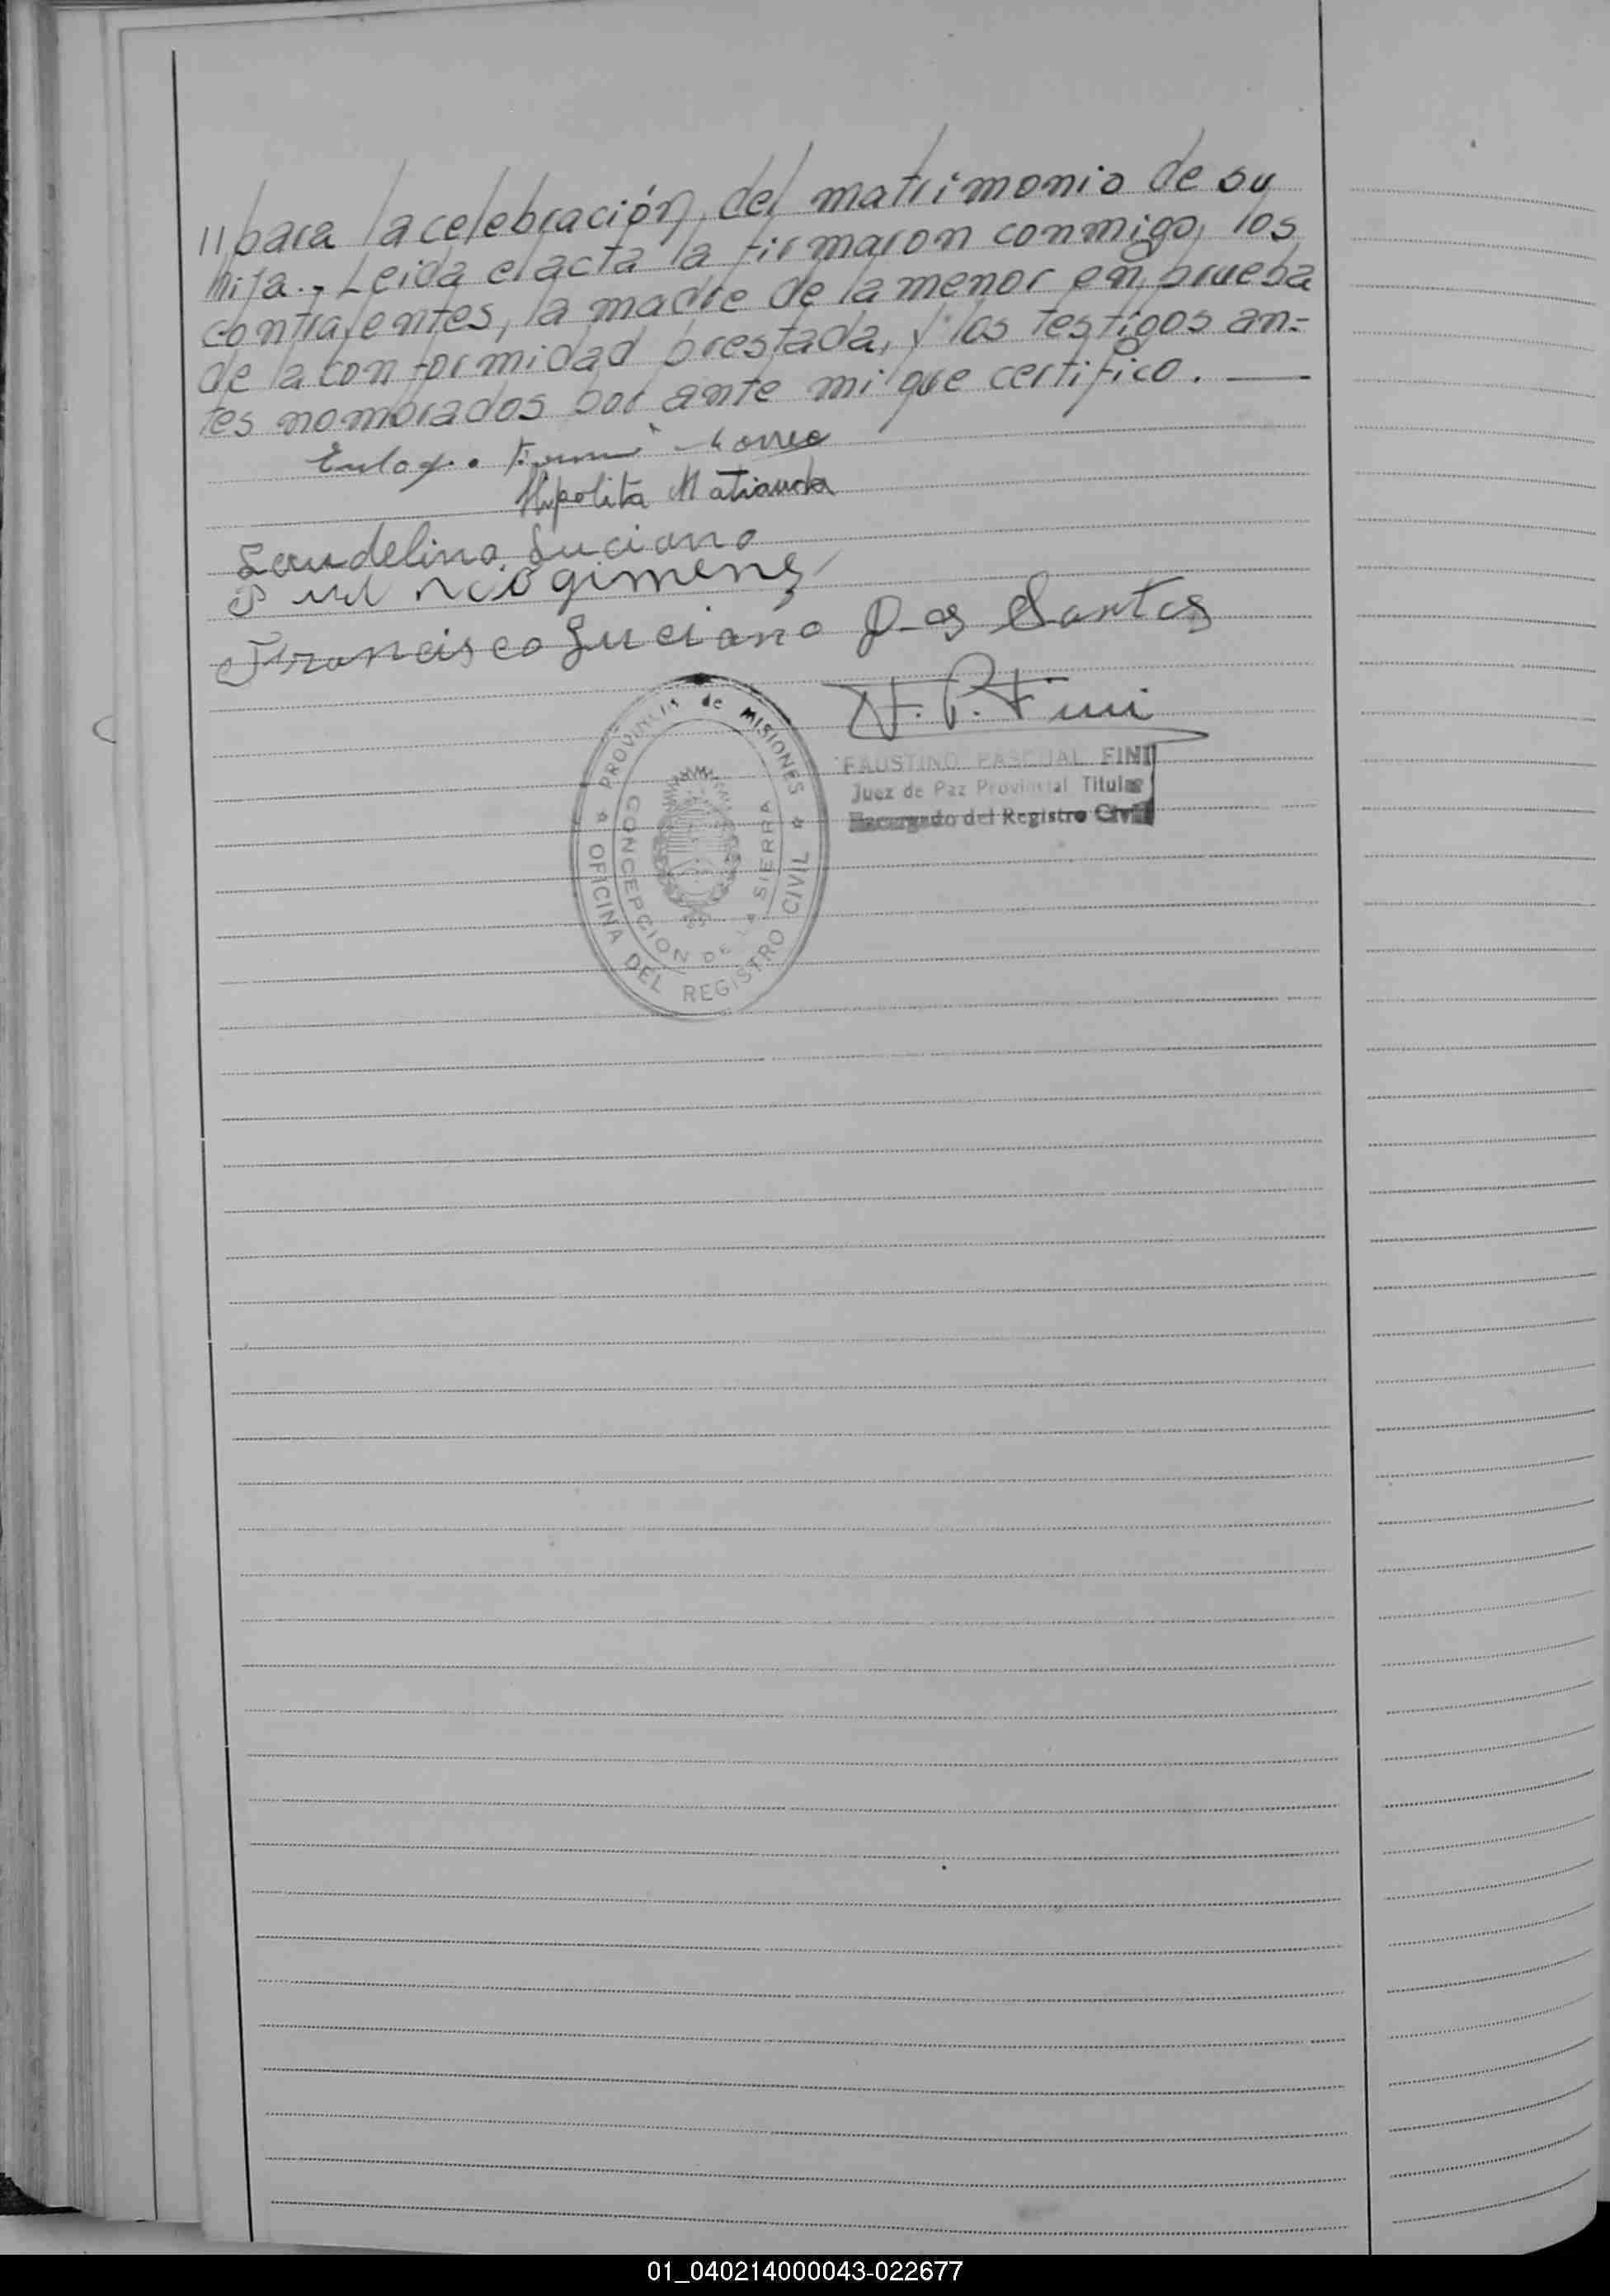 //para la celebración, del matrimonio de su
hija.- Leida el acta la firmaron conmigo, los
contrayentes, la madre de la menor en prueba
de la conformidad prestada, y los testigos an=
tes nombrados por ante mi que certifico. ——
Correa
Hipolita Matiauda
Laudelino Luciano
gimenez
Francisco Luciano Dos Santos
F. P. Fini
PROVINCIA de MISIONES
OFICINA DEL REGISTRO CIVIL
CONCEPCION DE LA SIERRA
FAUSTINO PASCUAL FINI
Juez de Paz Provincial Titular
Encargado del Registro Civil
01_040214000043-022677